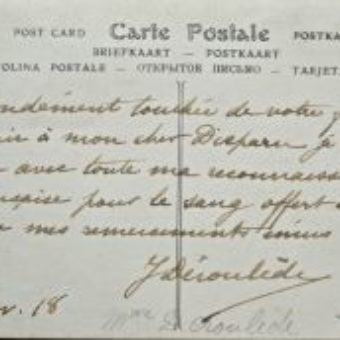 POST CARD Carte Postale POSTKA
BRIEFKAART — POSTKAART
OLINA POSTALE — ОТКРЫТОЕ ПИСЬМО — TARJET
ndément touchée de votre
à mon cher Disparu je
avec toute ma reconnaiss
pour le sang offert
mes remerciements émus
J Déroulède
v. 18
Mme Déroulède